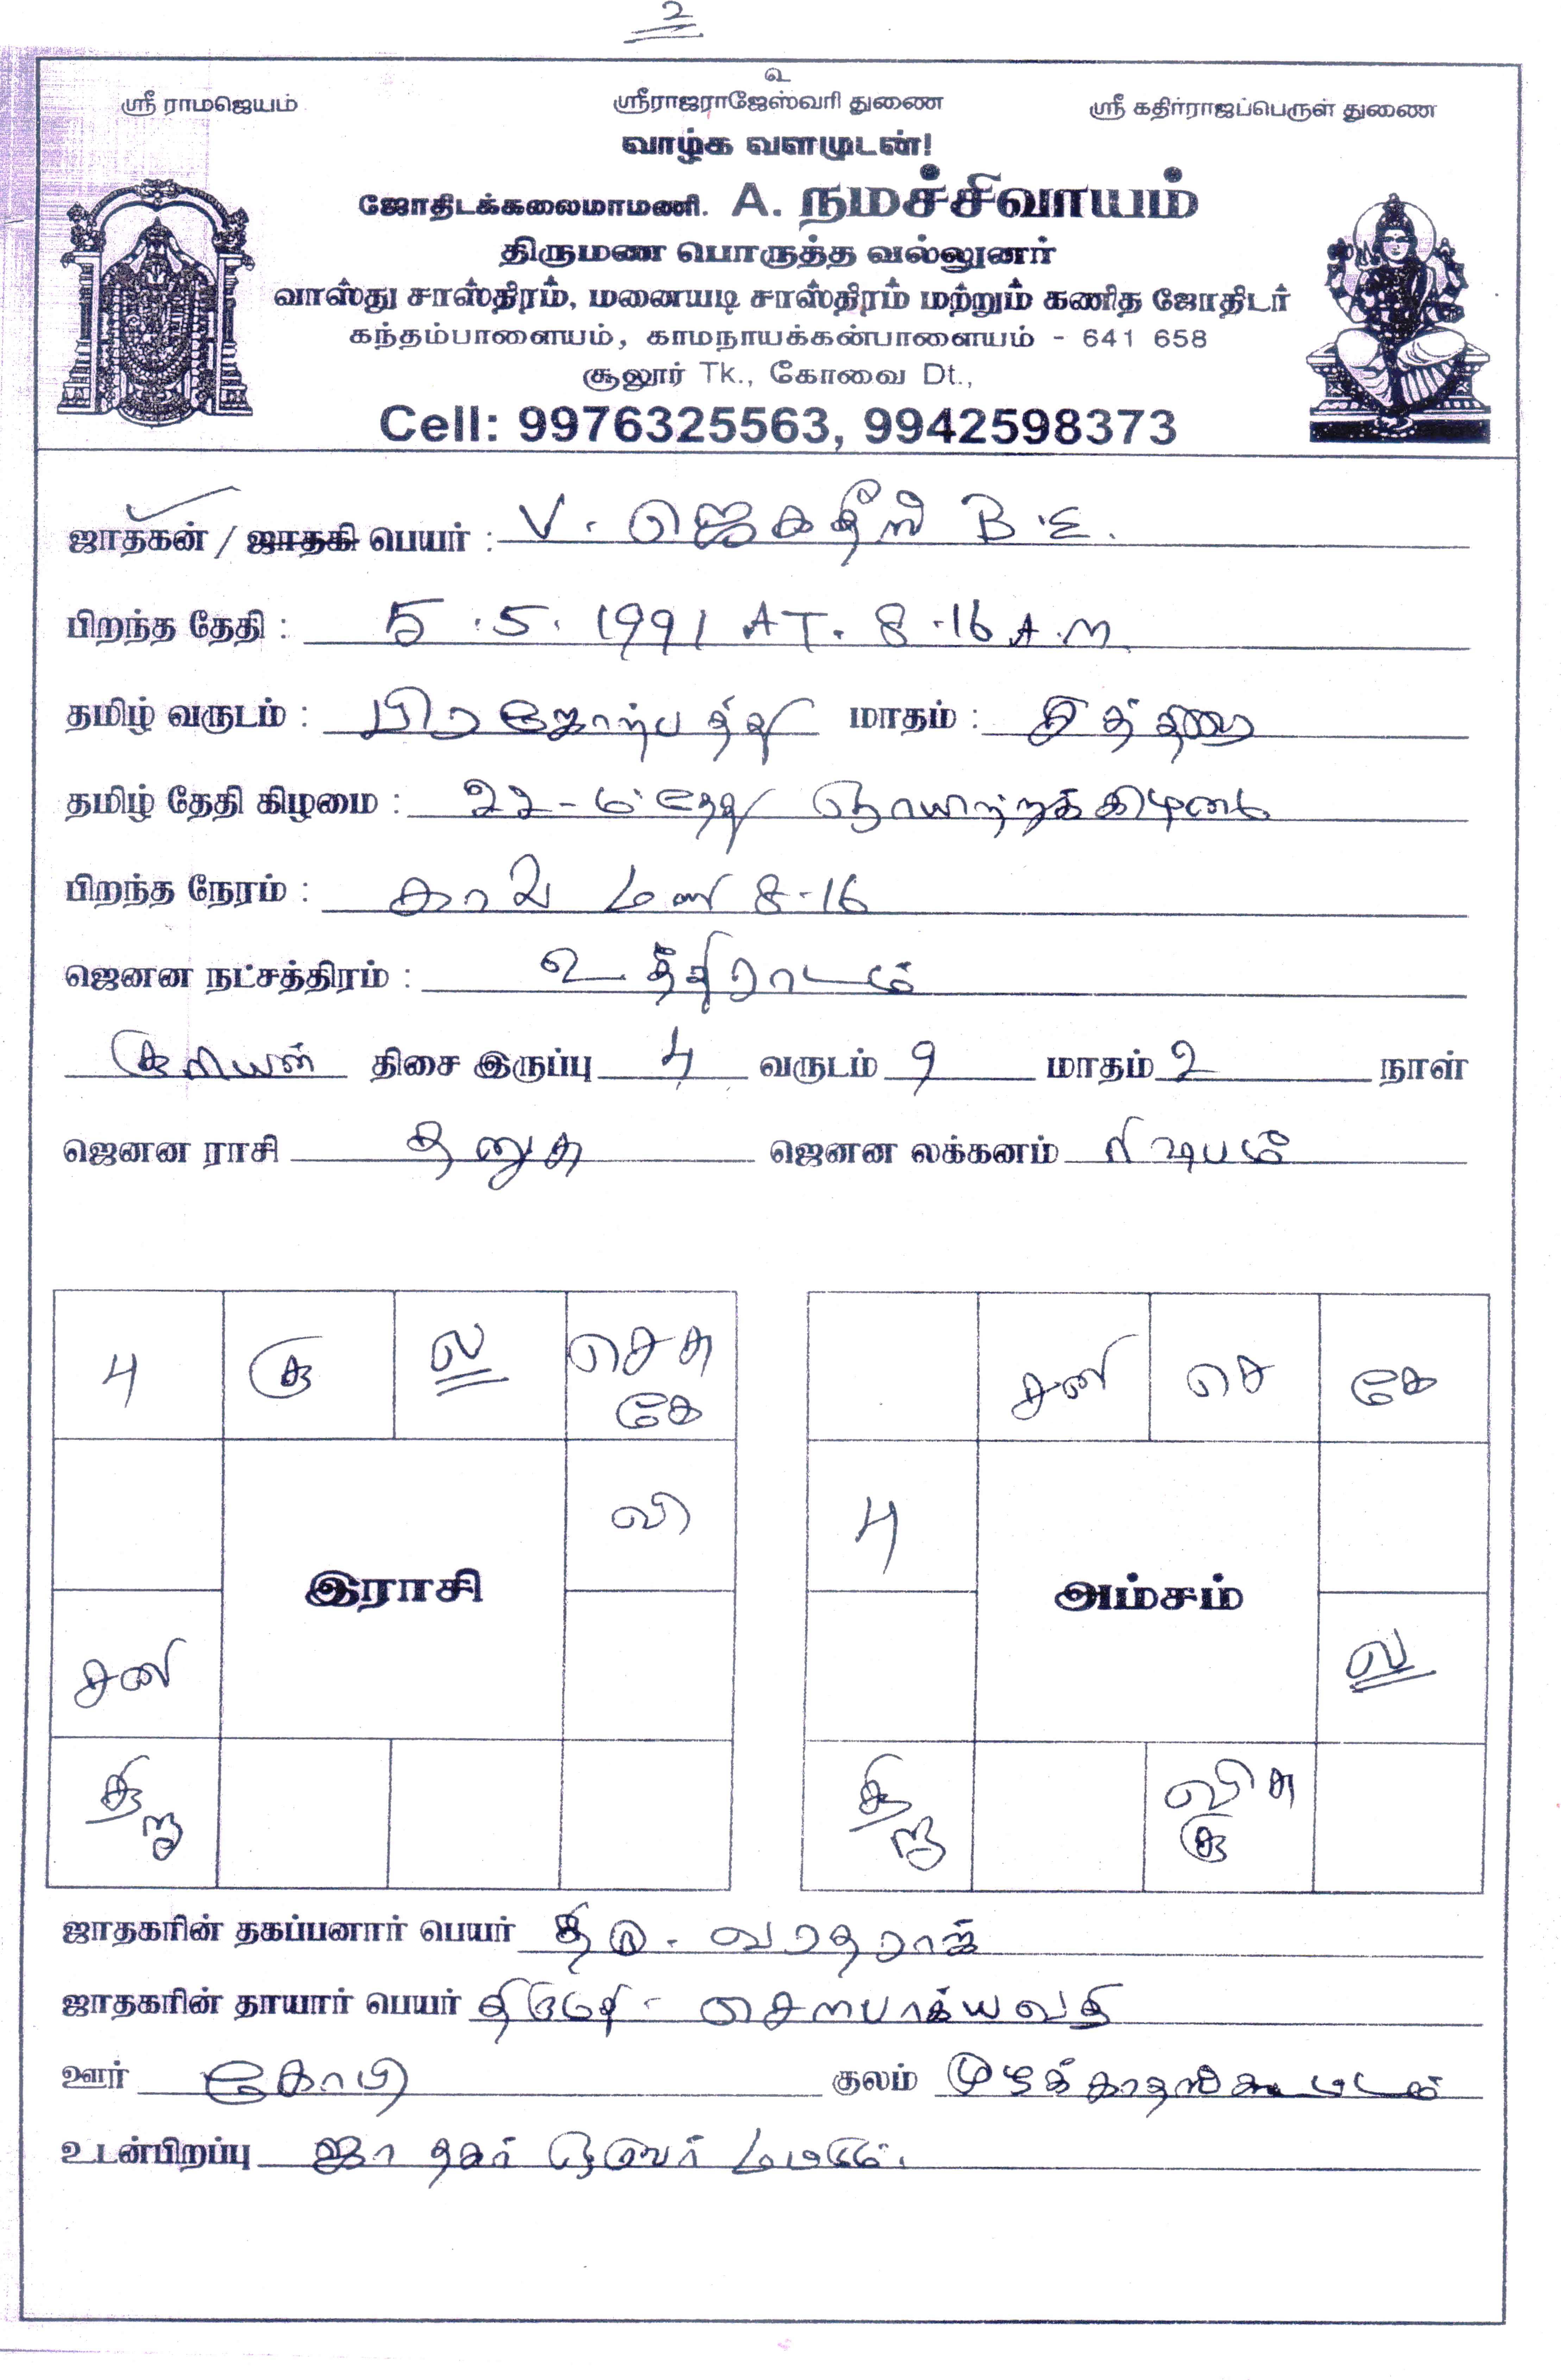 2
உ
ஸ்ரீ ராமஜெயம் ஸ்ரீராஜராஜேஸ்வரி துணை ஸ்ரீ கதிர்ராஜப்பெருள் துணை
வாழ்க வளமுடன்!
ஜோதிடக்கலைமாமணி. A. நமச்சிவாயம்
திருமண பொருத்த வல்லுனர்
வாஸ்து சாஸ்திரம், மனையடி சாஸ்திரம் மற்றும் கணித ஜோதிடர்
கந்தம்பாளையம், காமநாயக்கன்பாளையம் - 641 658
சூலூர் Tk., கோவை Dt.,
Cell: 9976325563, 9942598373
ஜாதகன் / ஜாதகி பெயர் : V. ஜெகதீஸ் B.E.
பிறந்த தேதி : 5.5.1991 AT. 8-16 A.M
தமிழ் வருடம் : பிரஜோற்பத்தி மாதம் : சித்திரை
தமிழ் தேதி கிழமை : 22-ம் தேதி ஞாயிற்றுக்கிழமை
பிறந்த நேரம் : காலை மணி 8-16
ஜெனன நட்சத்திரம் : உத்திராடம்
சூரியன் திசை இருப்பு 4 வருடம் 9 மாதம் 2 நாள்
ஜெனன ராசி தனுசு ஜெனன லக்கனம் ரிஷபம்
பு சூ ல செ சு சனி செ கே
கே
வி பு
இராசி அம்சம்
சனி ல
சந் சந் வி சு
ரா ரா சூ
ஜாதகரின் தகப்பனார் பெயர் திரு. வரதராஜ்
ஜாதகரின் தாயார் பெயர் திருமதி. சௌபாக்யவதி
ஊர் கோபி குலம்
உடன்பிறப்பு ஜாதகர் ஒருவர் மட்டும்.